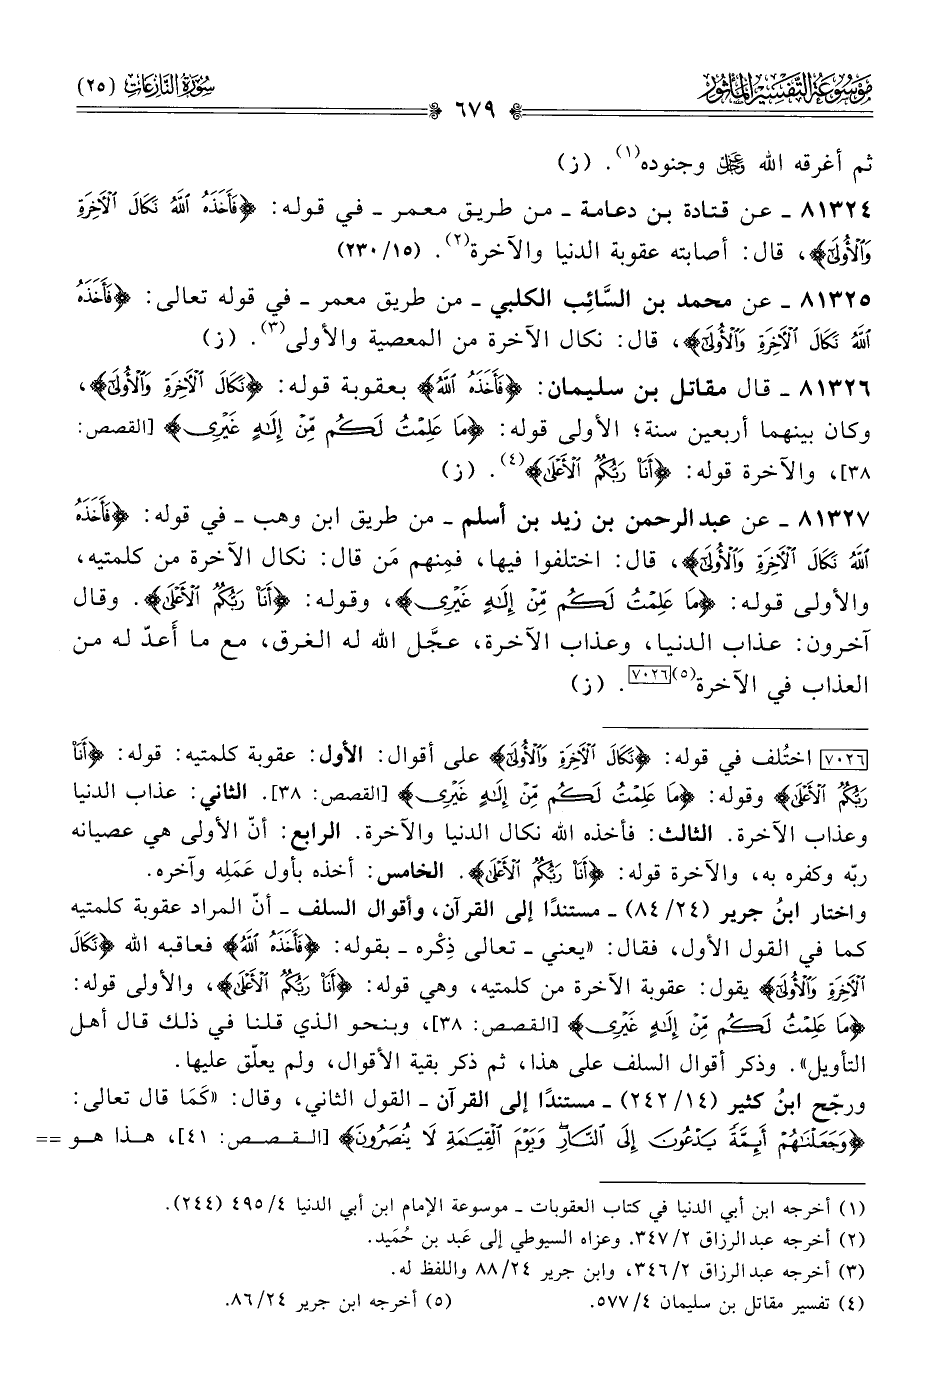 مَوْسُوعَة التَّفْسِير المَأْثُور
سُورَةُ النَّازِعَاتِ (٢٥)
٦٧٩
ثم أغرقه الله ﷿ وجنوده(١). (ز)
٨١٣٢٤ ـ عن قتادة بن دعامة ـ من طريق معمر ـ في قوله: ﴿فَأَخَذَهُ ٱللَّهُ نَكَالَ ٱلْأٓخِرَةِ
وَٱلْأُولَىٰٓ﴾، قال: أصابته عقوبة الدنيا والآخرة(٢). (٢٣٠/١٥)
٨١٣٢٥ ـ عن محمد بن السَّائِب الكلبي ـ من طريق معمر ـ في قوله تعالى: ﴿فَأَخَذَهُ
ٱللَّهُ نَكَالَ ٱلْأٓخِرَةِ وَٱلْأُولَىٰٓ﴾، قال: نكال الآخرة من المعصية والأولى(٣). (ز)
٨١٣٢٦ ـ قال مقاتل بن سليمان: ﴿فَأَخَذَهُ ٱللَّهُ﴾ بعقوبة قوله: ﴿نَكَالَ ٱلْأٓخِرَةِ وَٱلْأُولَىٰٓ﴾،
وكان بينهما أربعين سنة؛ الأولى قوله: ﴿مَا عَلِمْتُ لَكُم مِّنْ إِلَٰهٍ غَيْرِى﴾ [القصص:
٣٨]، والآخرة قوله: ﴿أَنَا۠ رَبُّكُمُ ٱلْأَعْلَىٰ﴾(٤). (ز)
٨١٣٢٧ ـ عن عبدالرحمن بن زيد بن أسلم ـ من طريق ابن وهب ـ في قوله: ﴿فَأَخَذَهُ
ٱللَّهُ نَكَالَ ٱلْأٓخِرَةِ وَٱلْأُولَىٰٓ﴾، قال: اختلفوا فيها، فمِنهم مَن قال: نكال الآخرة من كلمتيه،
والأولى قوله: ﴿مَا عَلِمْتُ لَكُم مِّنْ إِلَٰهٍ غَيْرِى﴾، وقوله: ﴿أَنَا۠ رَبُّكُمُ ٱلْأَعْلَىٰ﴾. وقال
آخرون: عذاب الدنيا، وعذاب الآخرة، عجَّل الله له الغرق، مع ما أَعدّ له من
العذاب في الآخرة(٥)[٧٠٢٦]. (ز)
[٧٠٢٦] اختُلف في قوله: ﴿نَكَالَ ٱلْأٓخِرَةِ وَٱلْأُولَىٰٓ﴾ على أقوال: الأول: عقوبة كلمتيه: قوله: ﴿أَنَا۠
رَبُّكُمُ ٱلْأَعْلَىٰ﴾ وقوله: ﴿مَا عَلِمْتُ لَكُم مِّنْ إِلَٰهٍ غَيْرِى﴾ [القصص: ٣٨]. الثاني: عذاب الدنيا
وعذاب الآخرة. الثالث: فأخذه الله نكال الدنيا والآخرة. الرابع: أنّ الأولى هي عصيانه
ربّه وكفره به، والآخرة قوله: ﴿أَنَا۠ رَبُّكُمُ ٱلْأَعْلَىٰ﴾. الخامس: أخذه بأول عَمَلِه وآخره.
واختار ابنُ جرير (٨٤/٢٤) ـ مستندًا إلى القرآن، وأقوال السلف ـ أنّ المراد عقوبة كلمتيه
كما في القول الأول، فقال: «يعني ـ تعالى ذِكْره ـ بقوله: ﴿فَأَخَذَهُ ٱللَّهُ﴾ فعاقبه الله ﴿نَكَالَ
ٱلْأٓخِرَةِ وَٱلْأُولَىٰٓ﴾ يقول: عقوبة الآخرة من كلمتيه، وهي قوله: ﴿أَنَا۠ رَبُّكُمُ ٱلْأَعْلَىٰ﴾، والأولى قوله:
﴿مَا عَلِمْتُ لَكُم مِّنْ إِلَٰهٍ غَيْرِى﴾ [القصص: ٣٨]، وبنحو الذي قلنا في ذلك قال أهل
التأويل». وذكر أقوال السلف على هذا، ثم ذكر بقية الأقوال، ولم يعلّق عليها.
ورجّح ابنُ كثير (٢٤٢/١٤) ـ مستندًا إلى القرآن ـ القول الثاني، وقال: «كَمَا قال تعالى:
﴿وَجَعَلْنَٰهُمْ أَئِمَّةً يَدْعُونَ إِلَى ٱلنَّارِ وَيَوْمَ ٱلْقِيَٰمَةِ لَا يُنصَرُونَ﴾ [القصص: ٤١]، هذا هو ==
(١) أخرجه ابن أبي الدنيا في كتاب العقوبات ـ موسوعة الإمام ابن أبي الدنيا ٤/ ٤٩٥ (٢٤٤).
(٢) أخرجه عبدالرزاق ٢/ ٣٤٧. وعزاه السيوطي إلى عَبد بن حُمَيد.
(٣) أخرجه عبدالرزاق ٢/ ٣٤٦، وابن جرير ٢٤/ ٨٨ واللفظ له.
(٤) تفسير مقاتل بن سليمان ٤/ ٥٧٧. (٥) أخرجه ابن جرير ٢٤/ ٨٦.